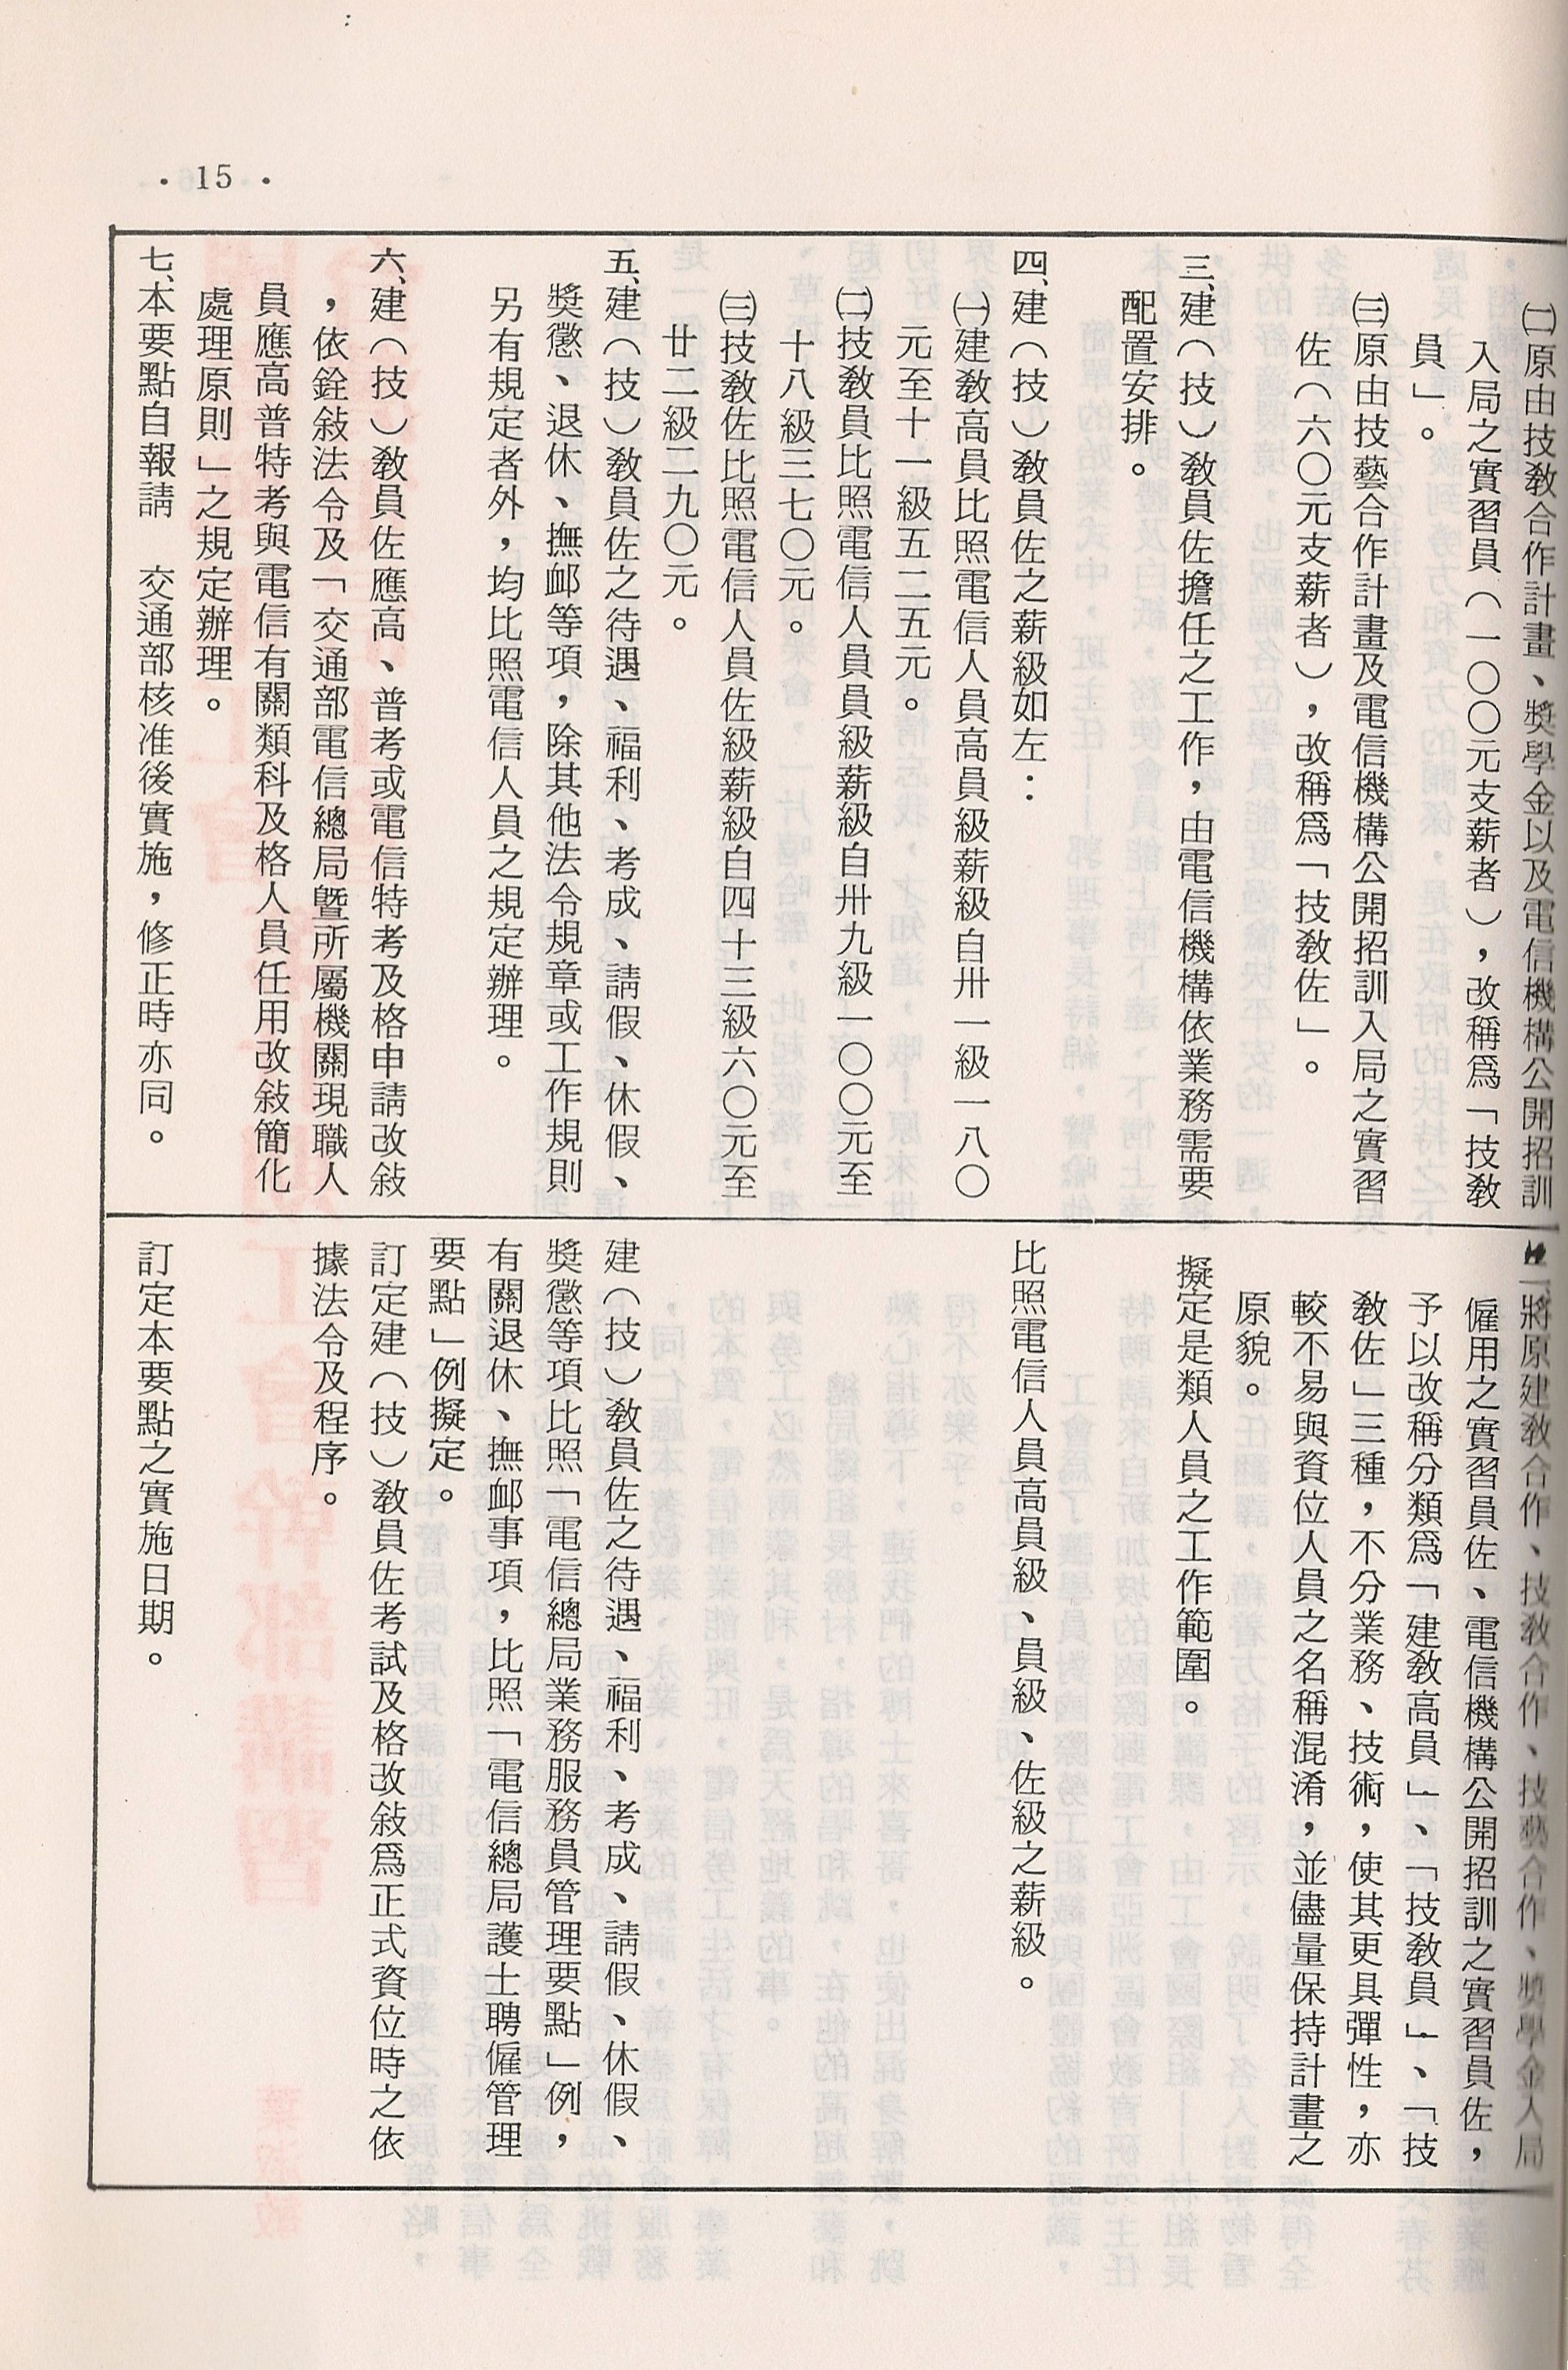 ㈡原由技教合作計畫、獎學金以及電信機構公開招訓
入局之實習員（一〇〇元支薪者），改稱爲「技教
員」。
㈢原由技藝合作計畫及電信機構公開招訓入局之實習
佐（六〇元支薪者），改稱爲「技教佐」。
三、建（技）教員佐擔任之工作，由電信機構依業務需要
配置安排。
四、建（技）教員佐之薪級如左：
㈠建教高員比照電信人員高員級薪級自卅一級一八〇
元至十一級五二五元。
㈡技教員比照電信人員員級薪級自卅九級一〇〇元至
十八級三七〇元。
㈢技教佐比照電信人員佐級薪級自四十三級六〇元至
廿二級二九〇元。
五、建（技）教員佐之待遇、福利、考成、請假、休假、
獎懲、退休、撫卹等項，除其他法令規章或工作規則
另有規定者外，均比照電信人員之規定辦理。
六、建（技）教員佐應高、普考或電信特考及格申請改敍
，依銓敍法令及「交通部電信總局曁所屬機關現職人
員應高普特考與電信有關類科及格人員任用改敍簡化
處理原則」之規定辦理。
七、本要點自報請　交通部核准後實施，修正時亦同。
將原建教合作、技教合作、技藝合作、獎學金入局
僱用之實習員佐、電信機構公開招訓之實習員佐，
予以改稱分類爲「建教高員」、「技教員」、「技
教佐」三種，不分業務、技術，使其更具彈性，亦
較不易與資位人員之名稱混淆，並儘量保持計畫之
原貌。
擬定是類人員之工作範圍。
比照電信人員高員級、員級、佐級之薪級。
建（技）教員佐之待遇、福利、考成、請假、休假、
獎懲等項比照「電信總局業務服務員管理要點」例，
有關退休、撫卹事項，比照「電信總局護士聘僱管理
要點」例擬定。
訂定建（技）教員佐考試及格改敍爲正式資位時之依
據法令及程序。
訂定本要點之實施日期。
• 15 •